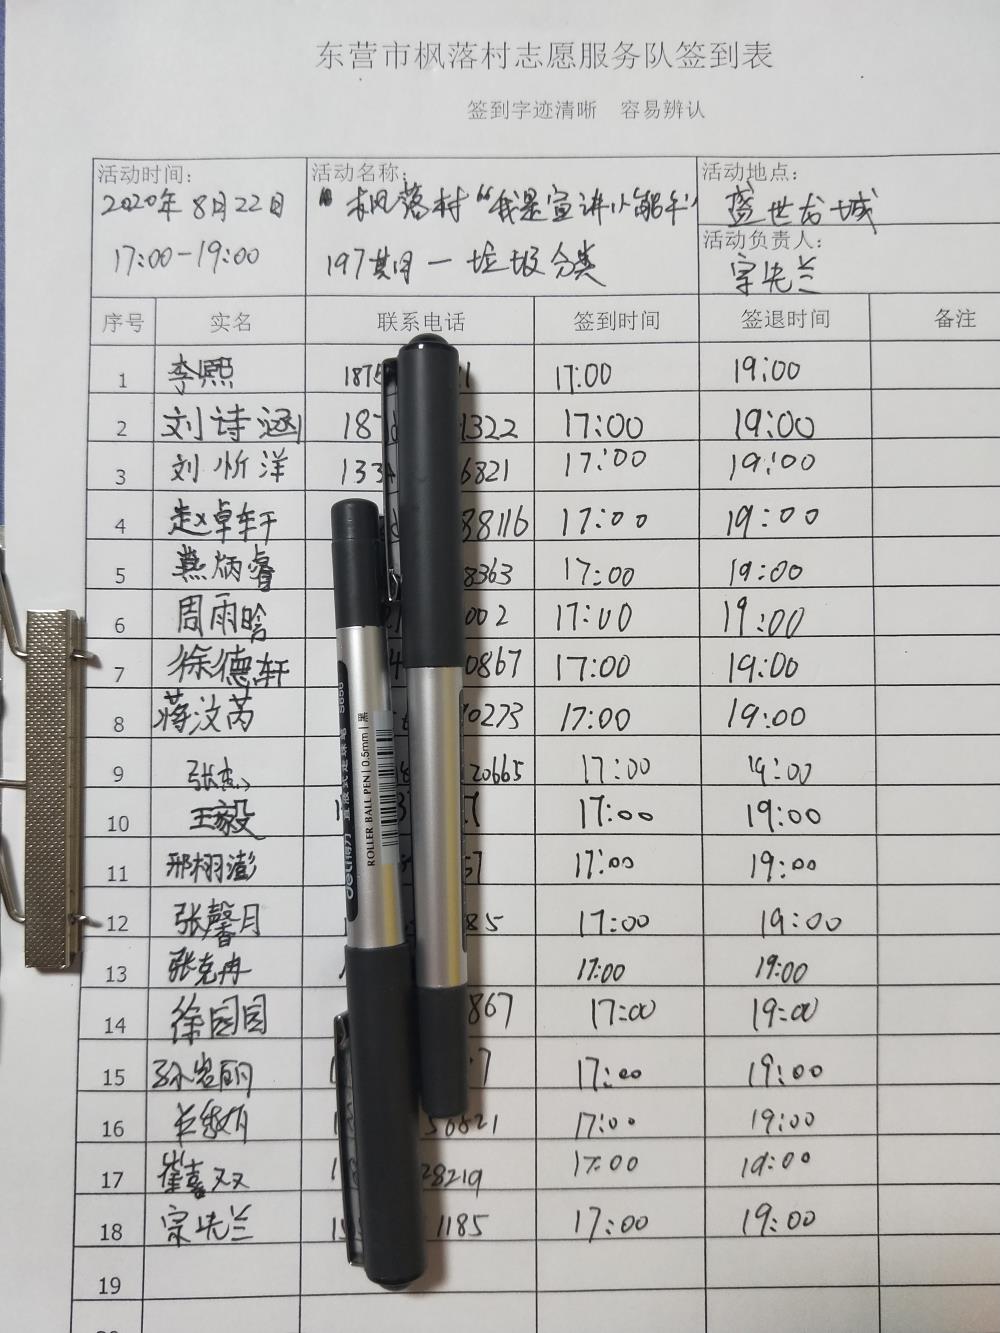 东营市枫落村志愿服务队签到表
签到字迹清晰 容易辨认
活动时间: 活动名称: 活动地点:
2020年8月22日 "枫落村"我是宣讲小能手" 盛世龙城
17:00-19:00 197期—垃圾分类 活动负责人:
宗先兰
序号 实名 联系电话 签到时间 签退时间 备注
1 李熙 187 1 17:00 19:00
2 刘诗涵 187 1322 17:00 19:00
3 刘忻洋 133 6821 17:00 19:00
4 赵卓轩 88116 17:00 19:00
5 燕炳睿 8363 17:00 19:00
6 周雨晗 002 17:00 19:00
7 徐德轩 0867 17:00 19:00
8 蒋汶芮 0273 17:00 19:00
9 张 20665 17:00 19:00
10 王毅 17:00 19:00
11 邢栩澎 57 17:00 19:00
12 张馨月 85 17:00 19:00
13 张克冉 17:00 19:00
14 徐园园 867 17:00 19:00
15 孙岩丽 7 17:00 19:00
16 50821 17:00 19:00
17 崔喜双 28219 17:00 19:00
18 宗先兰 1185 17:00 19:00
19
deli得力 直液式走珠笔 S656
ROLLER BALL PEN 0.5mm 黑